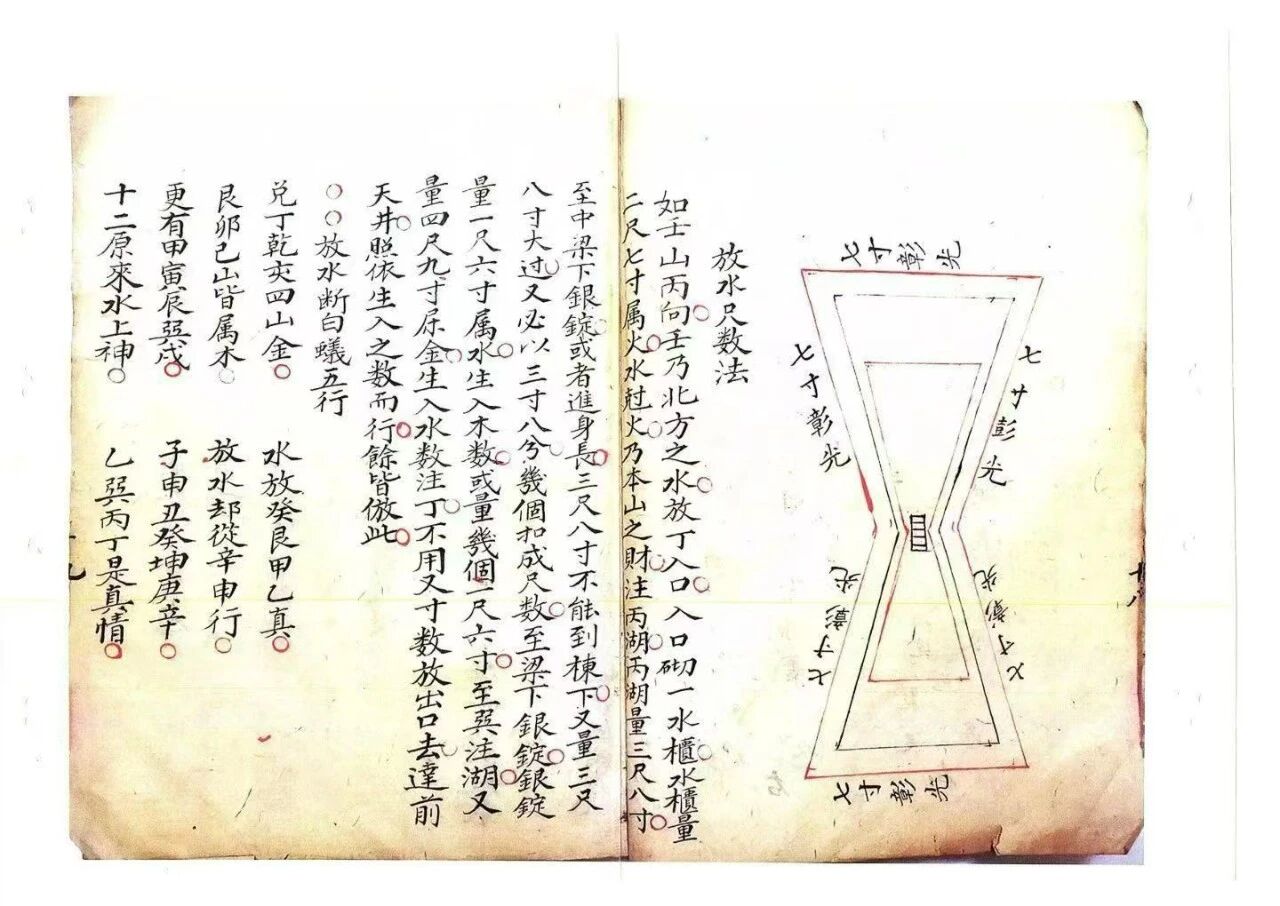 七寸彰光
七寸彰光
七寸彰光
七寸彰光
七寸彰光
七寸彰光
放水尺数法
如壬山丙向壬乃北方之水放丁入口入口砌一水櫃水櫃量
二尺七寸属火水尅火乃本山之財注丙湖丙湖量三尺八寸
至中梁下銀錠或者進身長三尺八寸不能到棟下又量三尺
八寸大过又必以三寸八兮幾個扣成尺数至梁下銀錠銀錠
量一尺六寸属水生入木数或量幾個一尺六寸至巽注湖又
量四尺九寸屬金生入水数注丁不用又寸数放出口去達前
天井照依生入之数而行餘皆倣此
放水断白蟻五行
兑丁乾亥四山金 水放癸艮甲乙真
艮卯巳山皆属木 放水却從辛申行
更有甲寅辰巽戍 子申丑癸坤庚辛
十二原來水上神 乙巽丙丁是真情